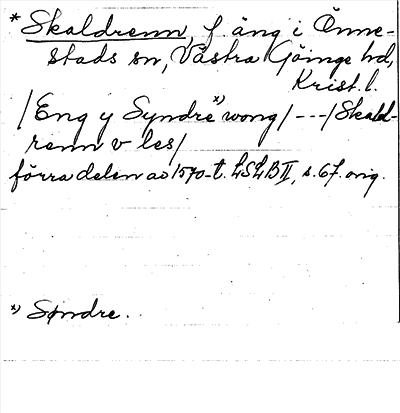 * Skaldrenn, f. äng i Önne-
stads sn, Västra Göinge hd,
Krist. l.
/Eng y Syndre *) wong/ - - - /Skald-
renn v les/
förra delen av 1570-t. LSLB II, s. 67. orig.
*) Søndre.